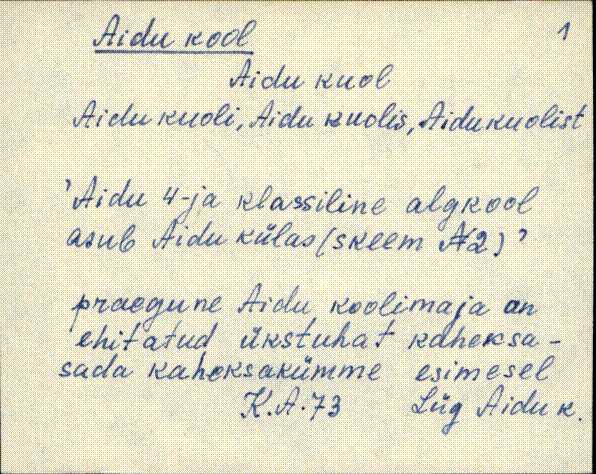 Aidu kool 1
Aidu kuol
Aidu kuoli, Aidu kuolis, Aidu kuolist
'Aidu 4-ja klassiline algkool
asub Aidu külas (skeem N2)'
praegune Aidu koolimaja on
ehitatud ükstuhat kaheksa-
sada kaheksakümme esimesel
K.A. 73 Lüg Aidu k.